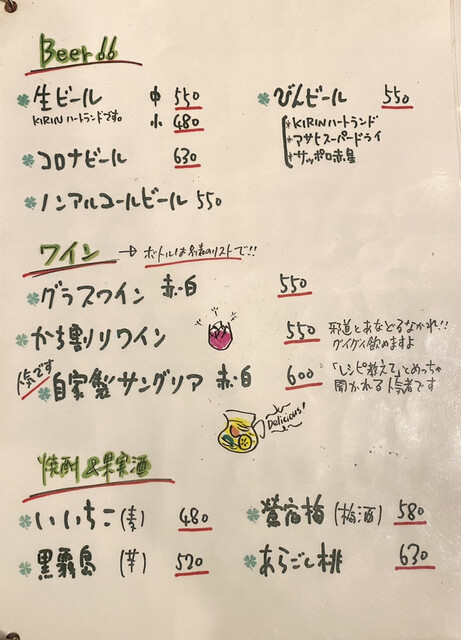 Beer
生ビール 中 550
KIRINハートランドです。 小 480
コロナビール 630
ノンアルコールビール 550
びんビール 550
*KIRINハートランド
*アサヒスーパードライ
*サッポロ赤星
ワイン → ボトルは別紙のリストで!!
グラスワイン 赤・白 550
かち割りワイン 550 邪道とあなどるなかれ!!
グイグイ飲めますよ
人気です
自家製サングリア 赤・白 600 「レシピ教えて」とめっちゃ
聞かれる人気者です
Delicious!
焼酎&果実酒
いいちこ(麦) 480
黒霧島 (芋) 520
鶯宿梅 (梅酒) 580
あらごし桃 630